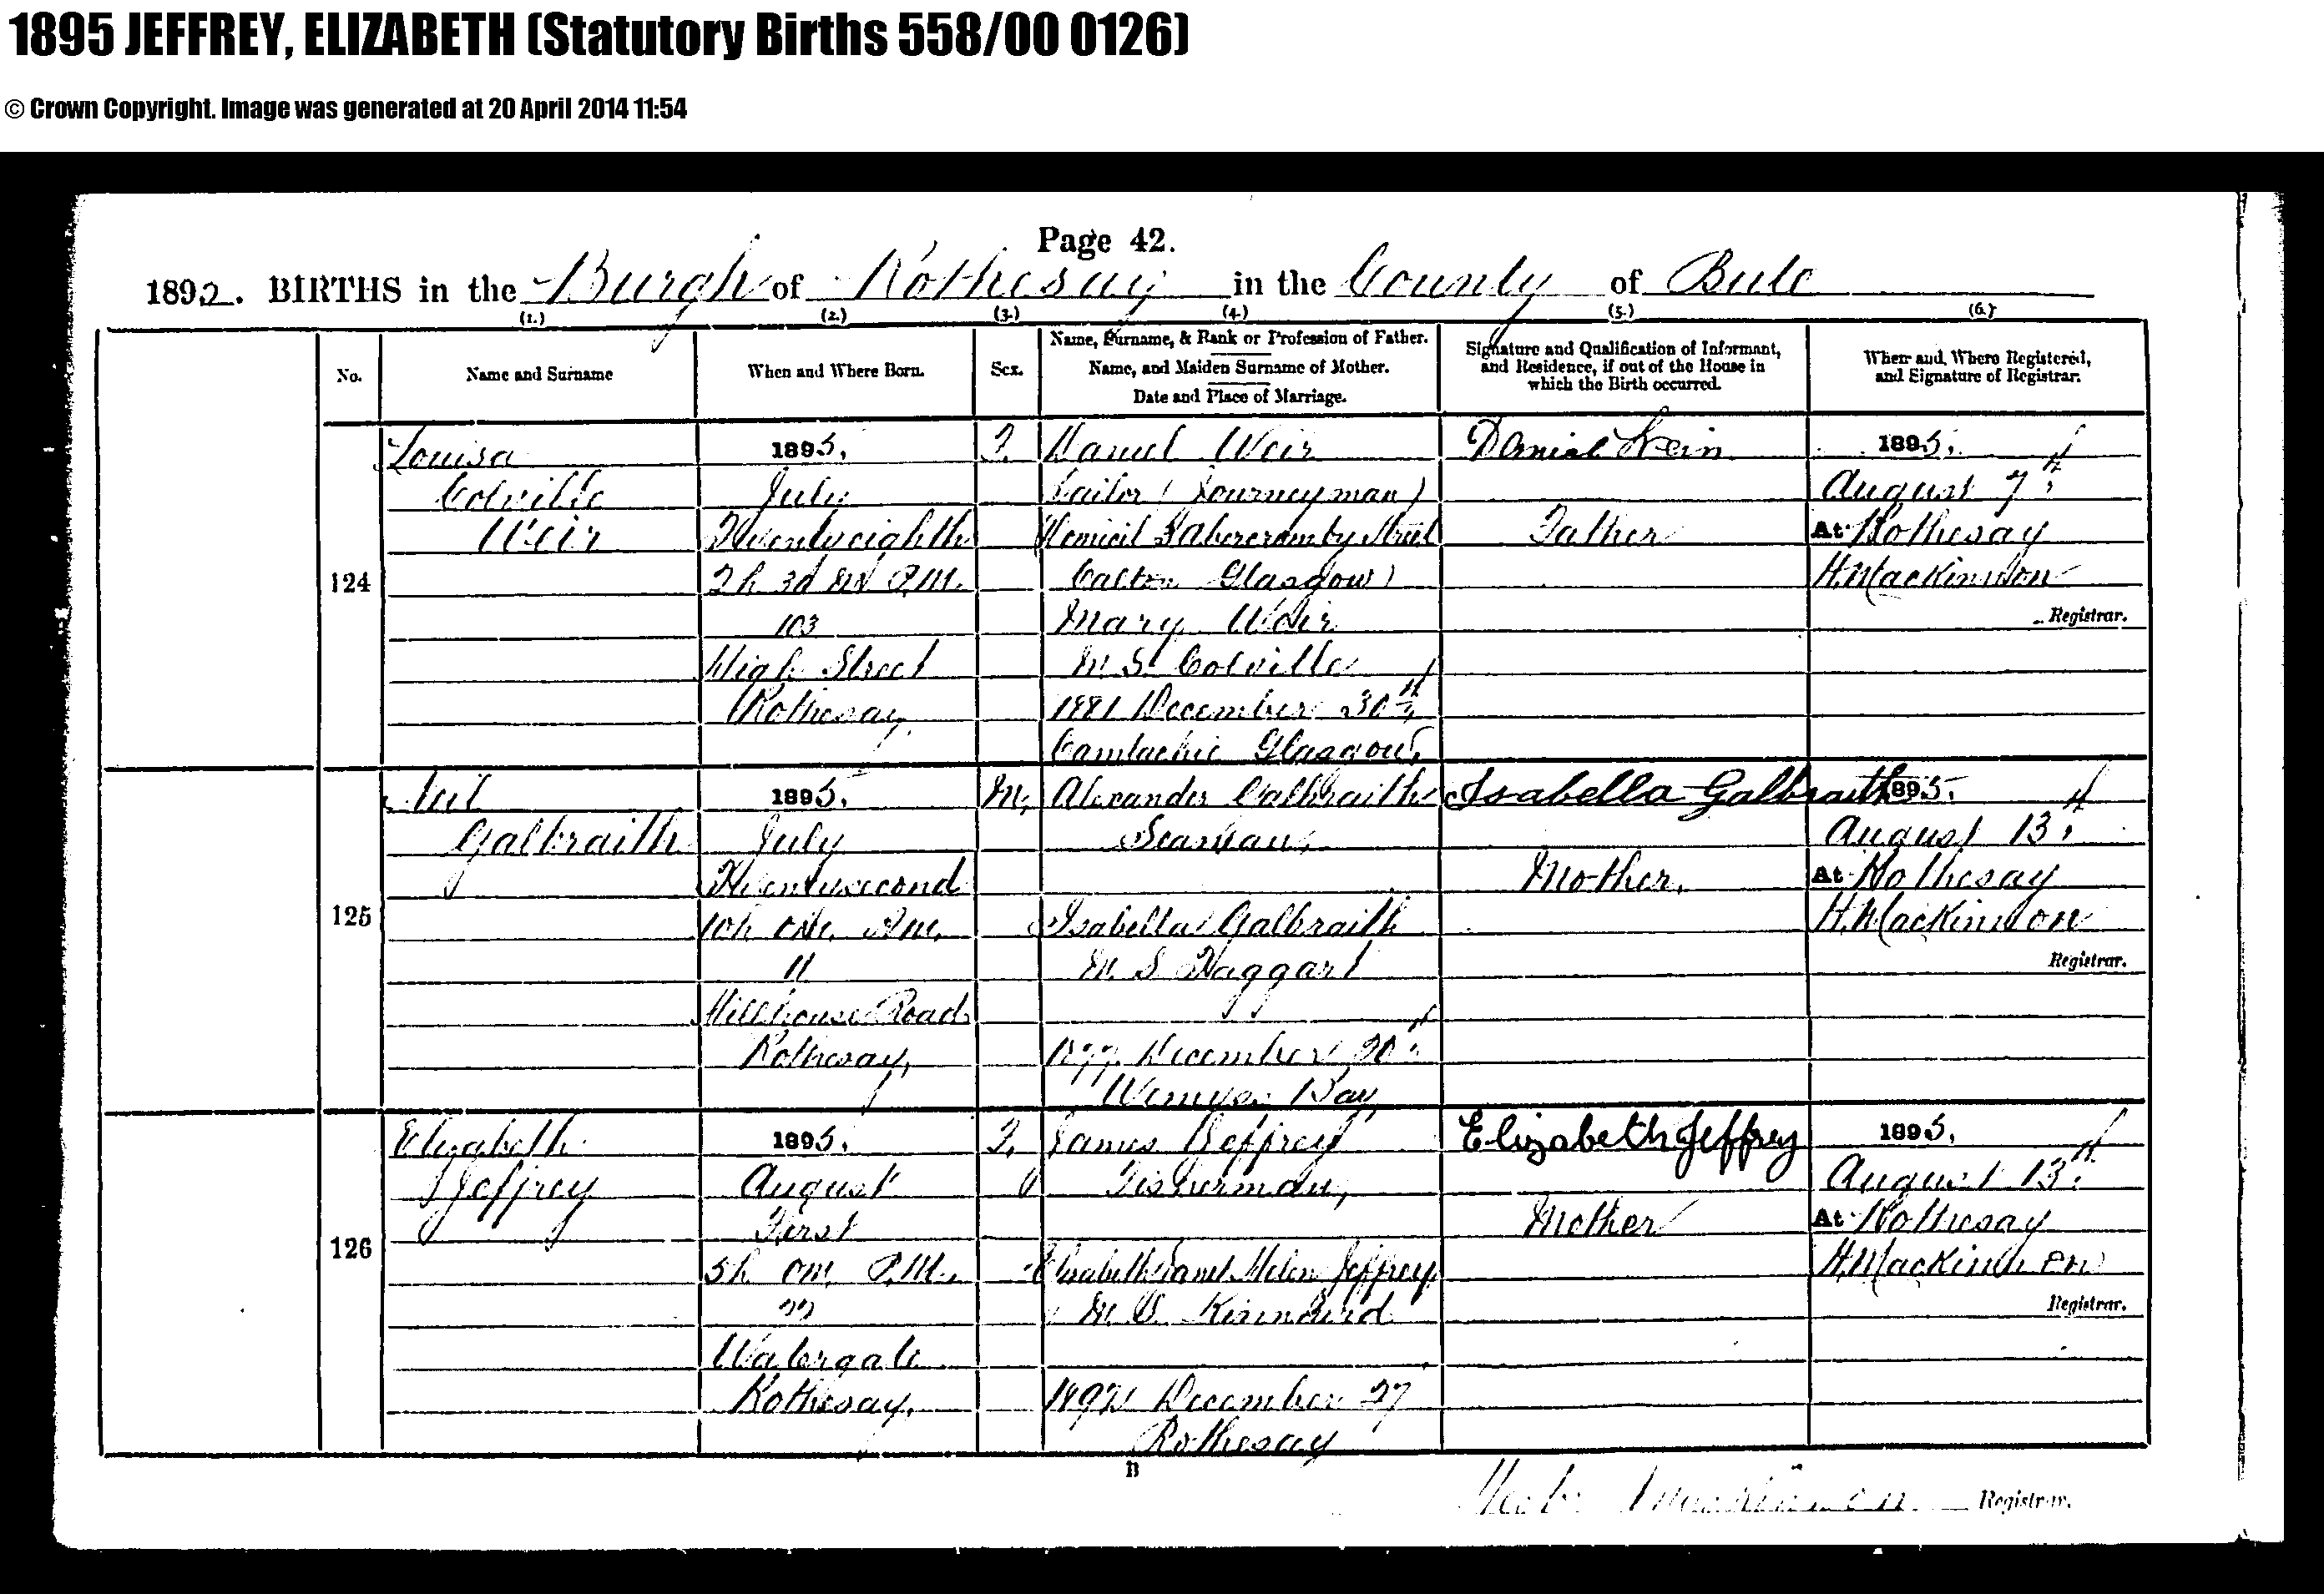 1895 JEFFREY, ELIZABETH (Statutory Births 558/00 0126)
© Crown Copyright. Image was generated at 20 April 2014 11:54
Page 42.
1892. BIRTHS in the Burgh of Rothesay in the County of Bute
(1.) (2.) (3.) (4.) (5.) (6.)
No.
Name and Surname
When and Where Born.
Sex.
Name, Surname, & Rank or Profession of Father.
Name, and Maiden Surname of Mother.
Date and Place of Marriage.
Signature and Qualification of Informant,
and Residence, if out of the House in
which the Birth occurred.
When and Where Registered,
and Signature of Registrar.
124
Louisa
Colville
Weir
1895,
July
Twentyeighth
2h 30 P.M.
103
High Street
Rothesay
F.
Daniel Weir
Tailor (Journeyman)
Abercromby Street
Calton Glasgow)
Mary Weir
M.S. Colville
1881 December 30th
Camlachie Glasgow,
Daniel Weir
Father
1895,
August 7th
At Rothesay
H. Mackinnon
Registrar.
125
Neil
Galbraith
1895,
July
Twentysecond
10h
11
Millhouse Road
Rothesay,
M,
Alexander Galbraith
Seaman,
Isabella Galbraith
M S Taggart
1877 December 20th
Wemyss Bay
Isabella Galbraith
Mother,
1895,
August 13th
At Rothesay
H. Mackinnon
Registrar.
126
Elizabeth
Jeffrey
1895,
August
First
5h 0m P.M.
22
Watergate
Rothesay,
F,
James Jeffrey
Fisherman,
Elizabeth Janet Helen Jeffrey
M.S. Kinnaird
1892 December 27
Rothesay
Elizabeth Jeffrey
Mother
1895,
August 13th
At Rothesay
H. Mackinnon
Registrar.
B
Mackinnon Registrar.